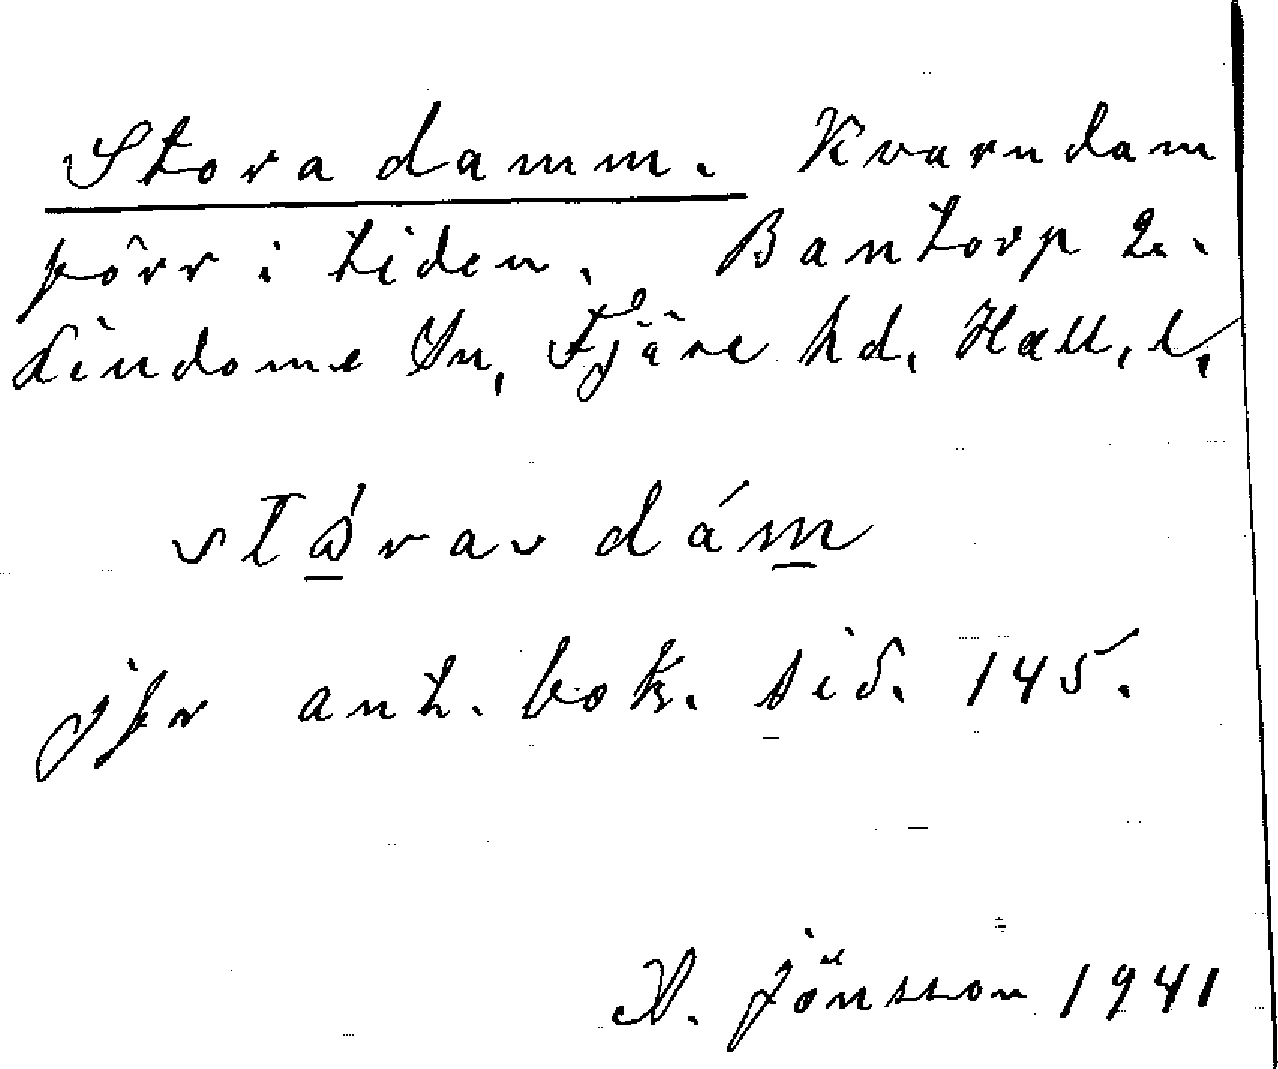 Stora damm. Kvarndam
förr i tiden. Bantorp 2.
Lindome Sn, Fjäre hd, Hall, l,
dám
jfr ant. bok. sid. 145.
Jönsson 1941